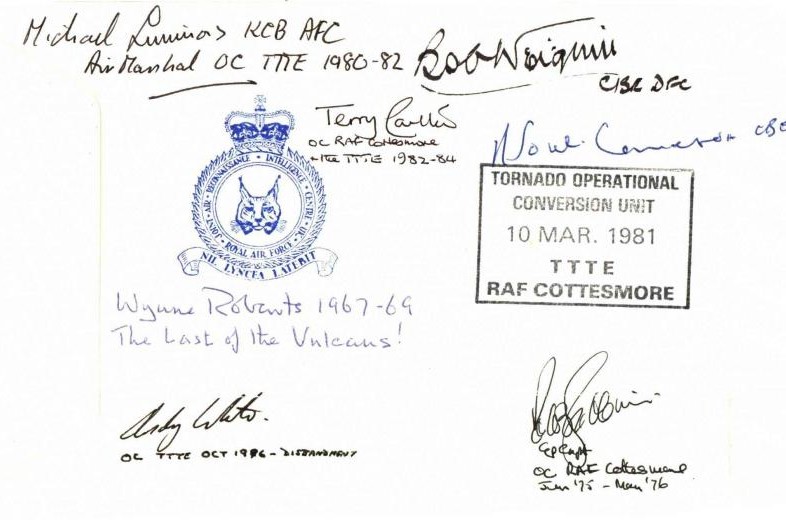 Michael KCB AFC
Air Marshal OC TTTE 1980-82
CBE DFC
Terry
OC RAF Cottesmore
+ the TTTE 1982-84
CBE
JOINT AIR RECONNAISSANCE INTELLIGENCE CENTRE (UK)
ROYAL AIR FORCE
NIL LYNCEA LATEBIT
TORNADO OPERATIONAL
CONVERSION UNIT
10 MAR. 1981
TTTE
RAF COTTESMORE
Wynne Roberts 1967-69
The Last of the Vulcans!
Andy White.
OC TTTE OCT 1996 - DISBANDMENT
Gp Capt
OC RAF Cottesmore
'75 - May '76